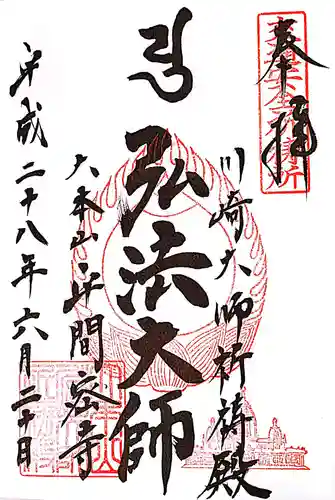 奉拝
川崎大師祈祷殿
弘法大師
大本山平間寺
平成二十八年六月二十日